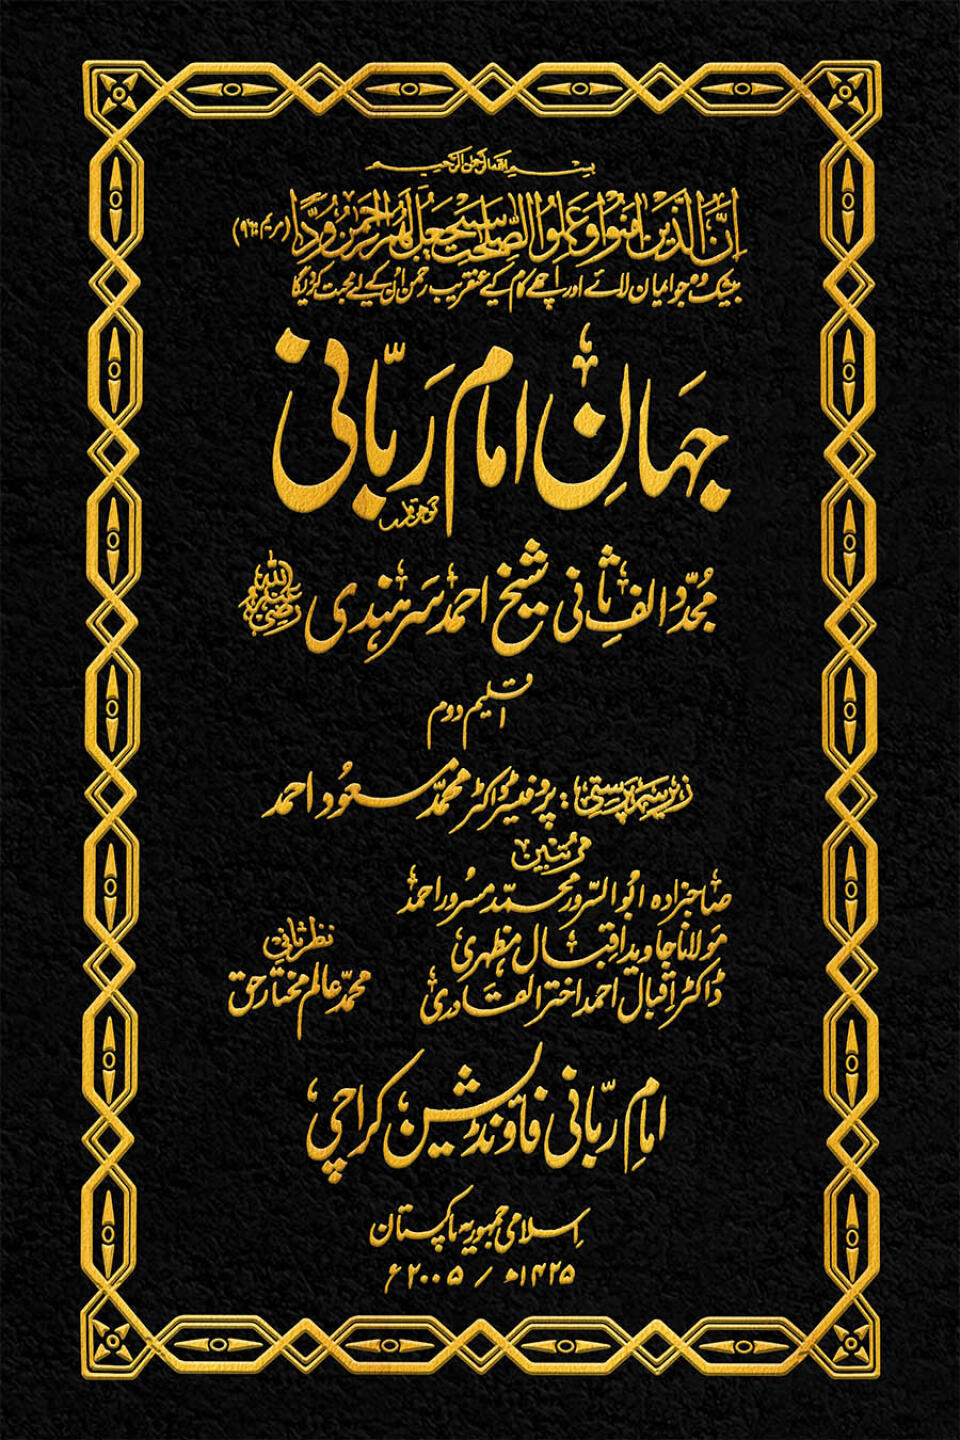 بسم الله الرحمن الرحيم
إِنَّ الَّذِينَ آمَنُوا وَعَمِلُوا الصَّالِحَاتِ سَيَجْعَلُ لَهُمُ الرَّحْمَنُ وُدًّا (مریم ۹۶)
بیشک وہ جو ایمان لائے اور اچھے کام کیے عنقریب رحمن ان کے لیے محبت کر دیگا
جہانِ امام ربّانی
مجدّد الفِ ثانی شیخ احمد سرہندی رضی اللہ عنہ
اقلیم دوم
زیر سرپرستی: پروفیسر ڈاکٹر محمّد مسعُود احمد
مرتبین
صاحبزادہ ابُو السّرور محمّد مسرُور احمد
مولانا جاوید اقبال مظہری
ڈاکٹر اقبال احمد اختر القادری
نظر ثانی
محمّد عالم مختار حق
امامِ ربّانی فاؤنڈیشن کراچی
اسلامی جمہوریہ پاکستان
۱۴۲۵ھ / ۲۰۰۵ء